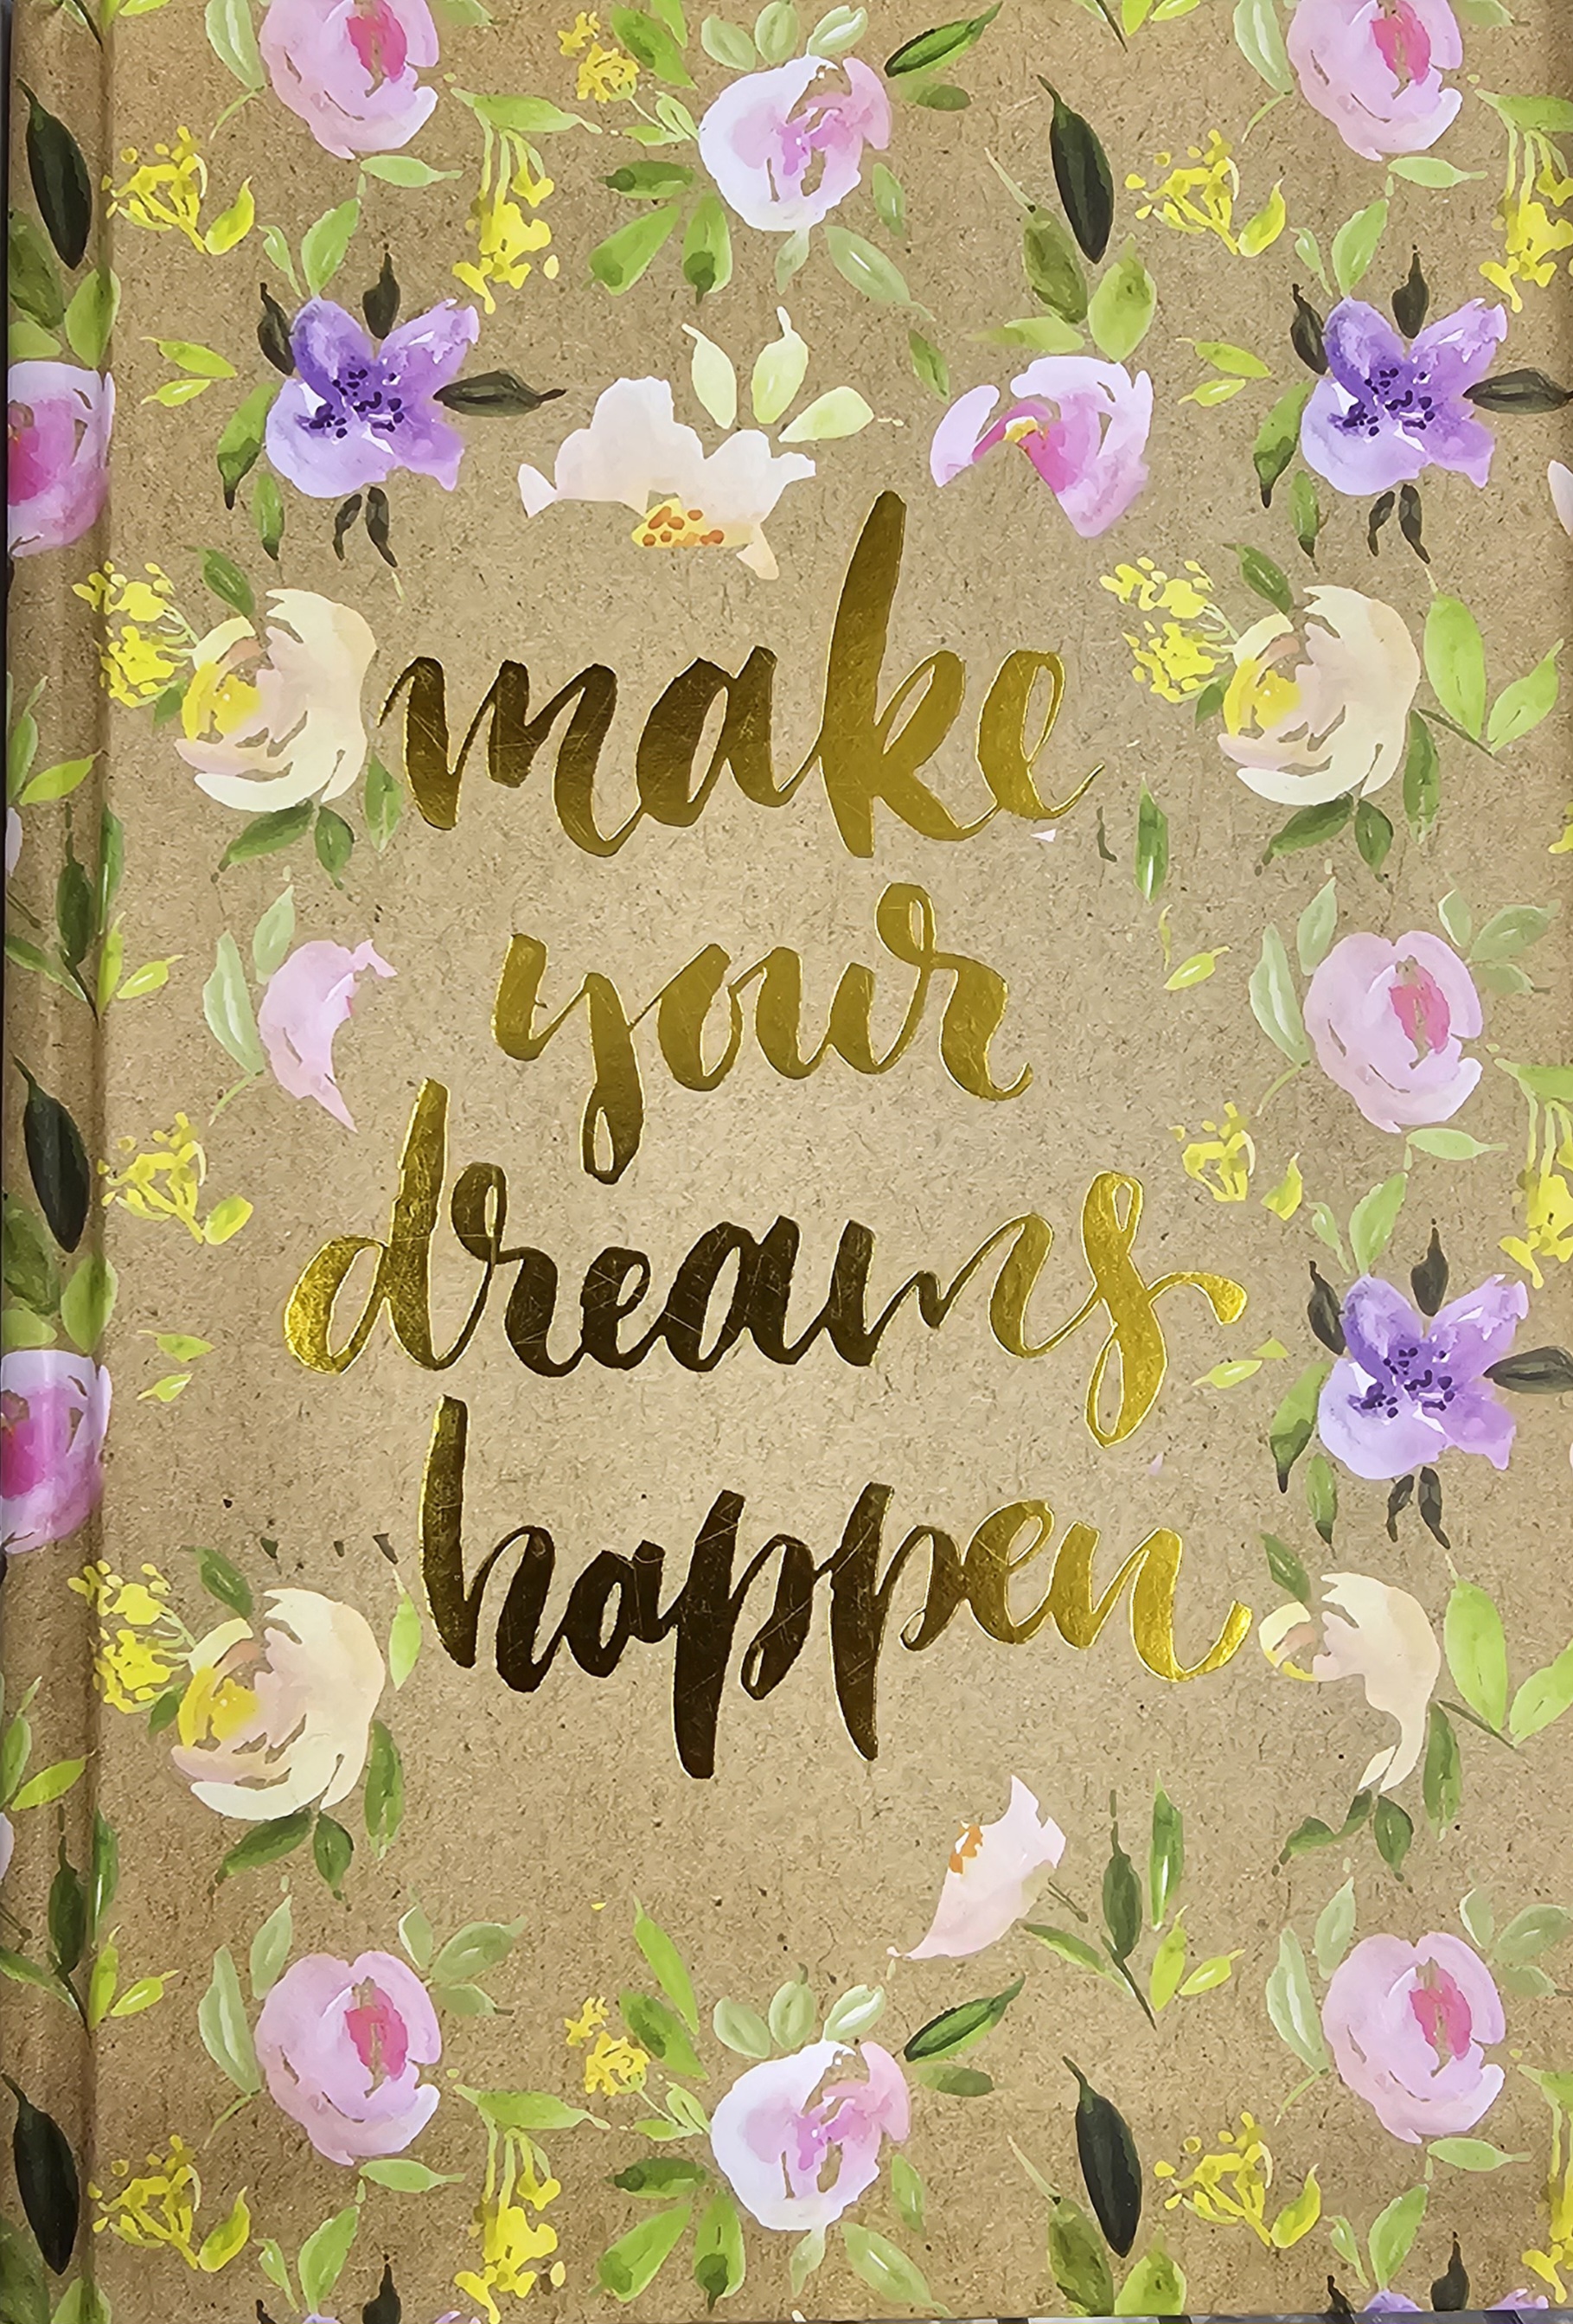 make
your
dreams
happen